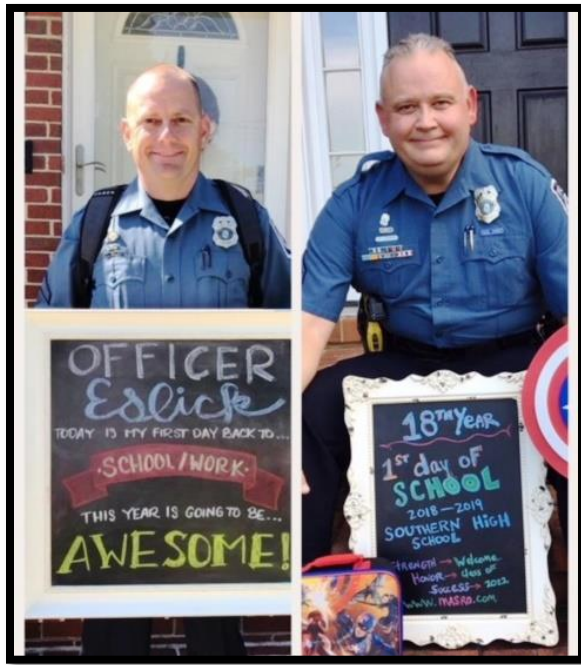 OFFICER
Eslick
TODAY IS MY FIRST DAY BACK TO...
·SCHOOL/WORK·
THIS YEAR IS GOING TO BE...
AWESOME!
18TH YEAR
1ST day of
SCHOOL
2018-2019
SOUTHERN HIGH
SCHOOL
STRENGTH → Welcome
HONOR → Class of
SUCCESS → 2022
www.MASRO.com